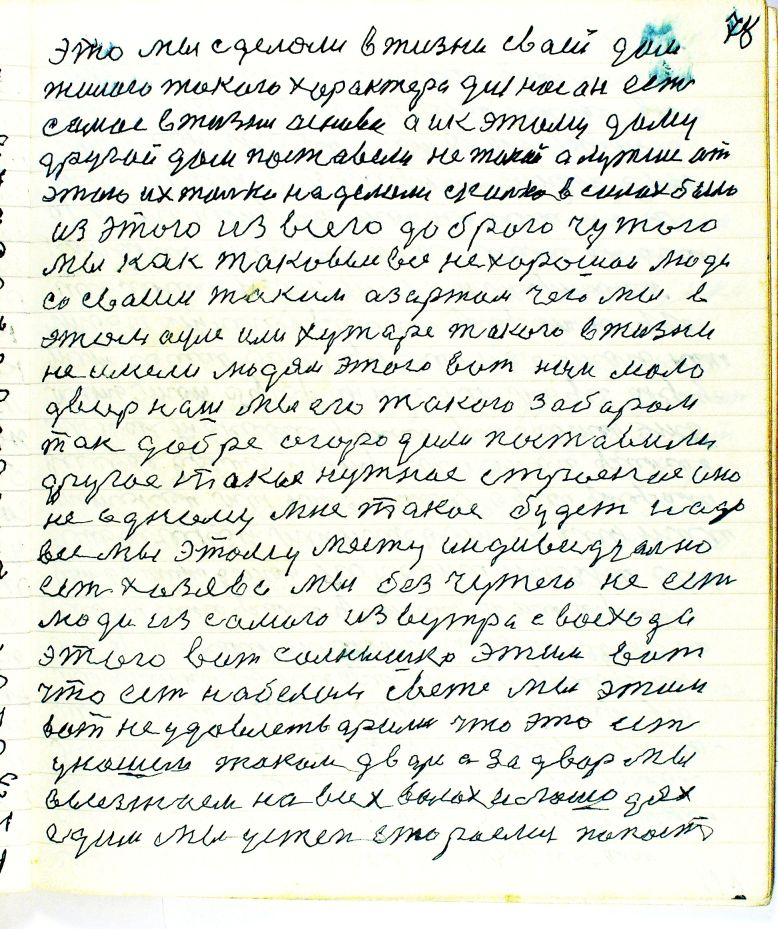 78
это мы сделали в жизни сваей дом
жилого такого характера для нас ан есть
самое в жизни аснова а ик этому дому
другой дом поставели не такой а лутше от
этого их толки наделали сколко в силах было
из этого из всего доброго чужого
мы как таковые все не хорошои люди
со сваим таким азартом чего мы в
этом ауле или хутаре такого в жизни
не имели людям этого вот нам мало
двор наш мы его такого забаром
так добре огородили поставили
другое такое нужное строение оно
не одному мне такое будет надо
все мы этому месту индивидуално
есть хазяева мы без чужого не есть
люди из самого из вутра с восхода
этого вот солнышко этим вот
что есть на белом свете мы этим
вот не удовлетварили что это есть
у нашем таком дваре а за двор мы
выезжаем на всех волах и лошадях
едим мы у степ стараемся попасть